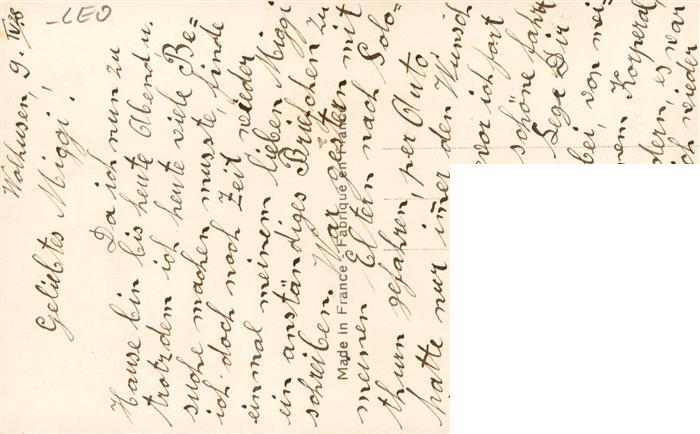 -LEO
Wolhusen, 9.
Geliebtes Miggi!
Da ich nun zu
Hause bin bis heute Abend u.
trotzdem ich heute viele Be=
suche machen musste, finde
ich doch noch Zeit wieder
einmal meinem lieben Miggi
ein anständiges Briefchen zu
schreiben. War gestern mit
meinen Eltern nach Solo-
thurn gefahren, per Auto,
hatte nur immer den Wunsch
vor ich fort
schöne fahrt
Lege Dir
bei, von mei-
nem Korperal
dern, es war
wieder
Made in France - Fabriqué en France